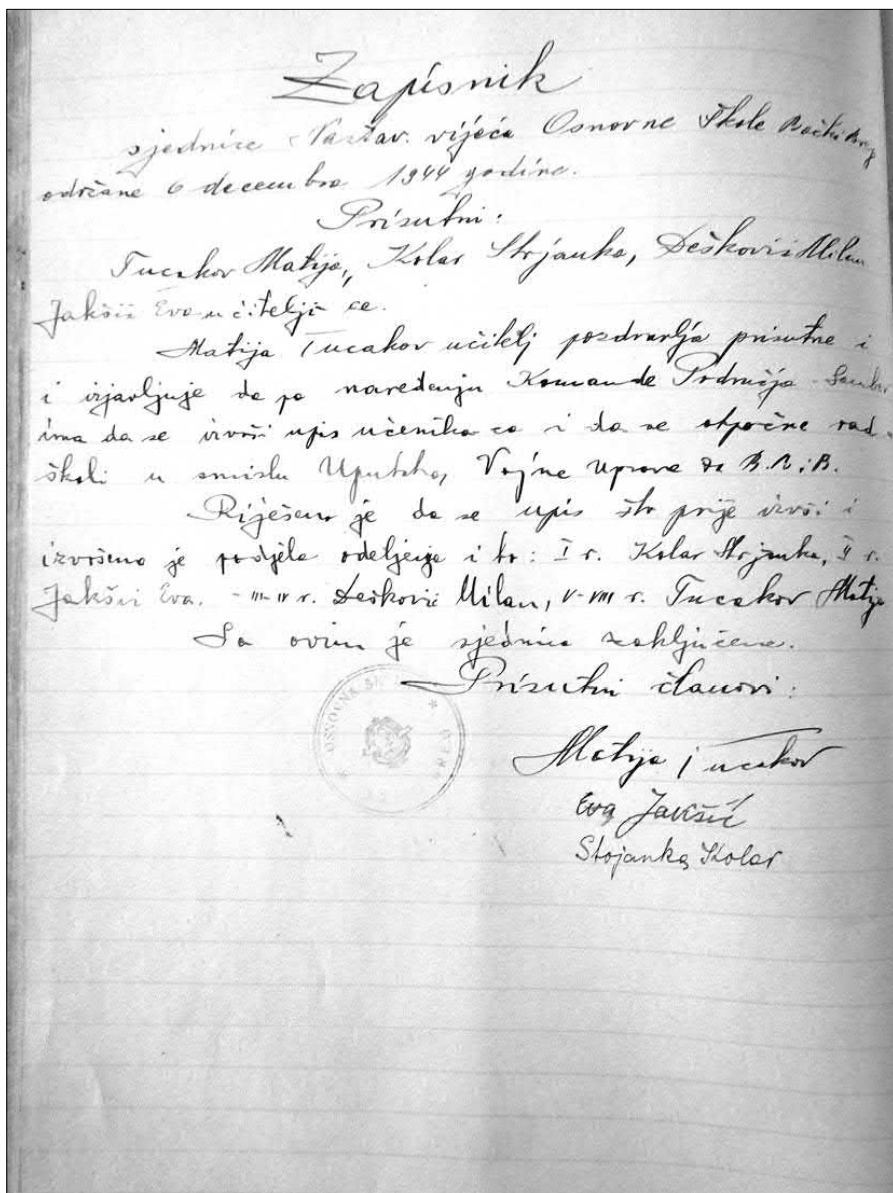 Zapisnik
sjednice Nastav. vijeća Osnovne Škole Bački Breg
održane 6 decembra 1944 godine.
Prisutni:
Tucakov Matija, Kolar Stojanka, Dešković Milan
Jakšić Eva učitelji-ce.
Matija Tucakov učitelj pozdravlja prisutne i
i izjavljuje da po naređenju Komande Područja - Sombor
ima da se izvrši upis učenika-ca i da se otpočne rad
školi u smislu Uputstva, Vojne Uprave za B. B. i B.
Riješeno je da se upis što prije izvrši i
izvršena je podjela odeljenja i to: I r. Kolar Stojanka, II r.
Jakšić Eva. - III-IV r. Dešković Milan, V-VIII r. Tucakov Matija
Sa ovim je sjednica zaključena.
Prisutni članovi:
OSNOVNA
Matija Tucakov
Eva Jakšić
Stojanka Kolar